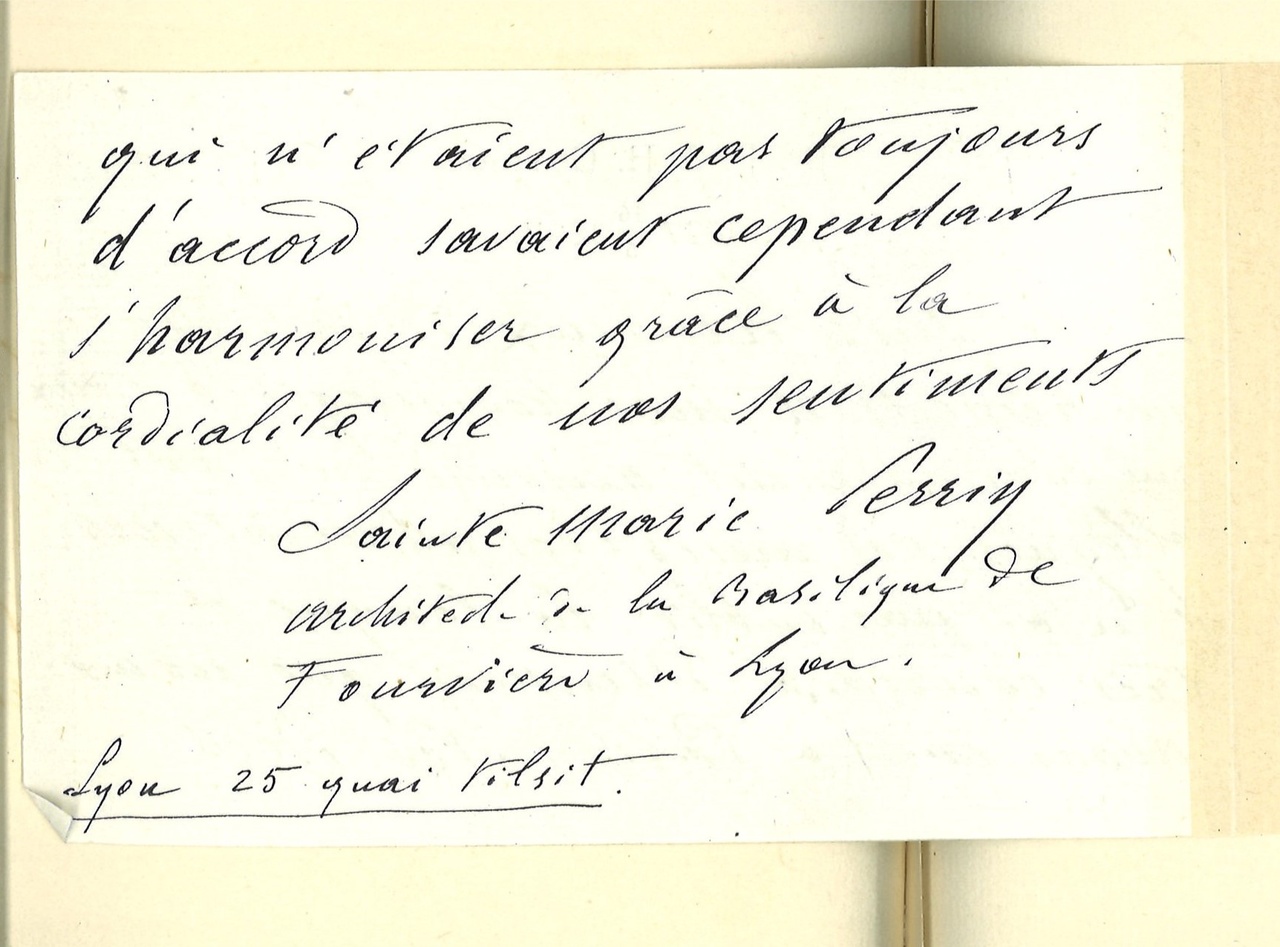 qui n'étaient pas toujours
d'accord savaient cependant
s'harmoniser grâce à la
cordialité de nos sentiments
Sainte Marie Perrin
architecte de la Basilique de
Fourvière à Lyon.
Lyon 25 quai Tilsit.